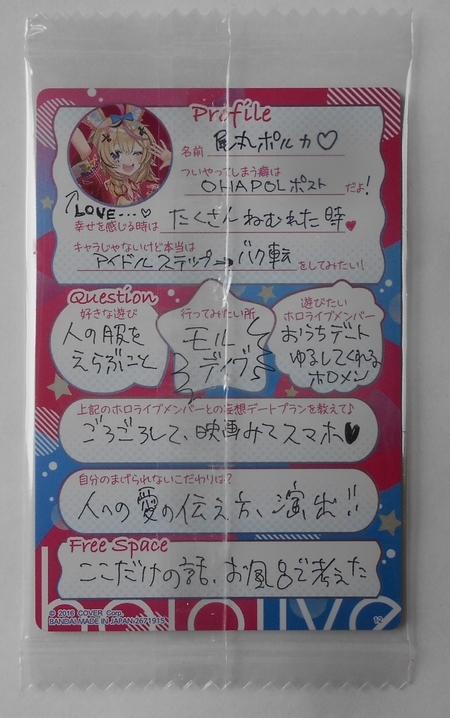 Profile
名前 尾丸ポルカ♡
ついやってしまう癖は
OHAPOLポスト だよ!
↑LOVE...♡
幸せを感じる時は たくさんねむれた時♥
キャラじゃないけど本当は
アイドルステップ→バク転 をしてみたい!
Question
好きな遊び
人の服を
えらぶこと
行ってみたい所
モル
ディヴ
遊びたい
ホロライブメンバー
おうちデート
ゆるしてくれる
ホロメン
上記のホロライブメンバーとの妄想デートプランを教えて♪
ごろごろして、映画みてスマホ♥
自分のまげられないこだわりは?
人への愛の伝え方、演出!!
Free Space
ここだけの話、お風呂で考えた
hololive
© 2016 COVER Corp.
BANDAI MADE IN JAPAN 2671915
12